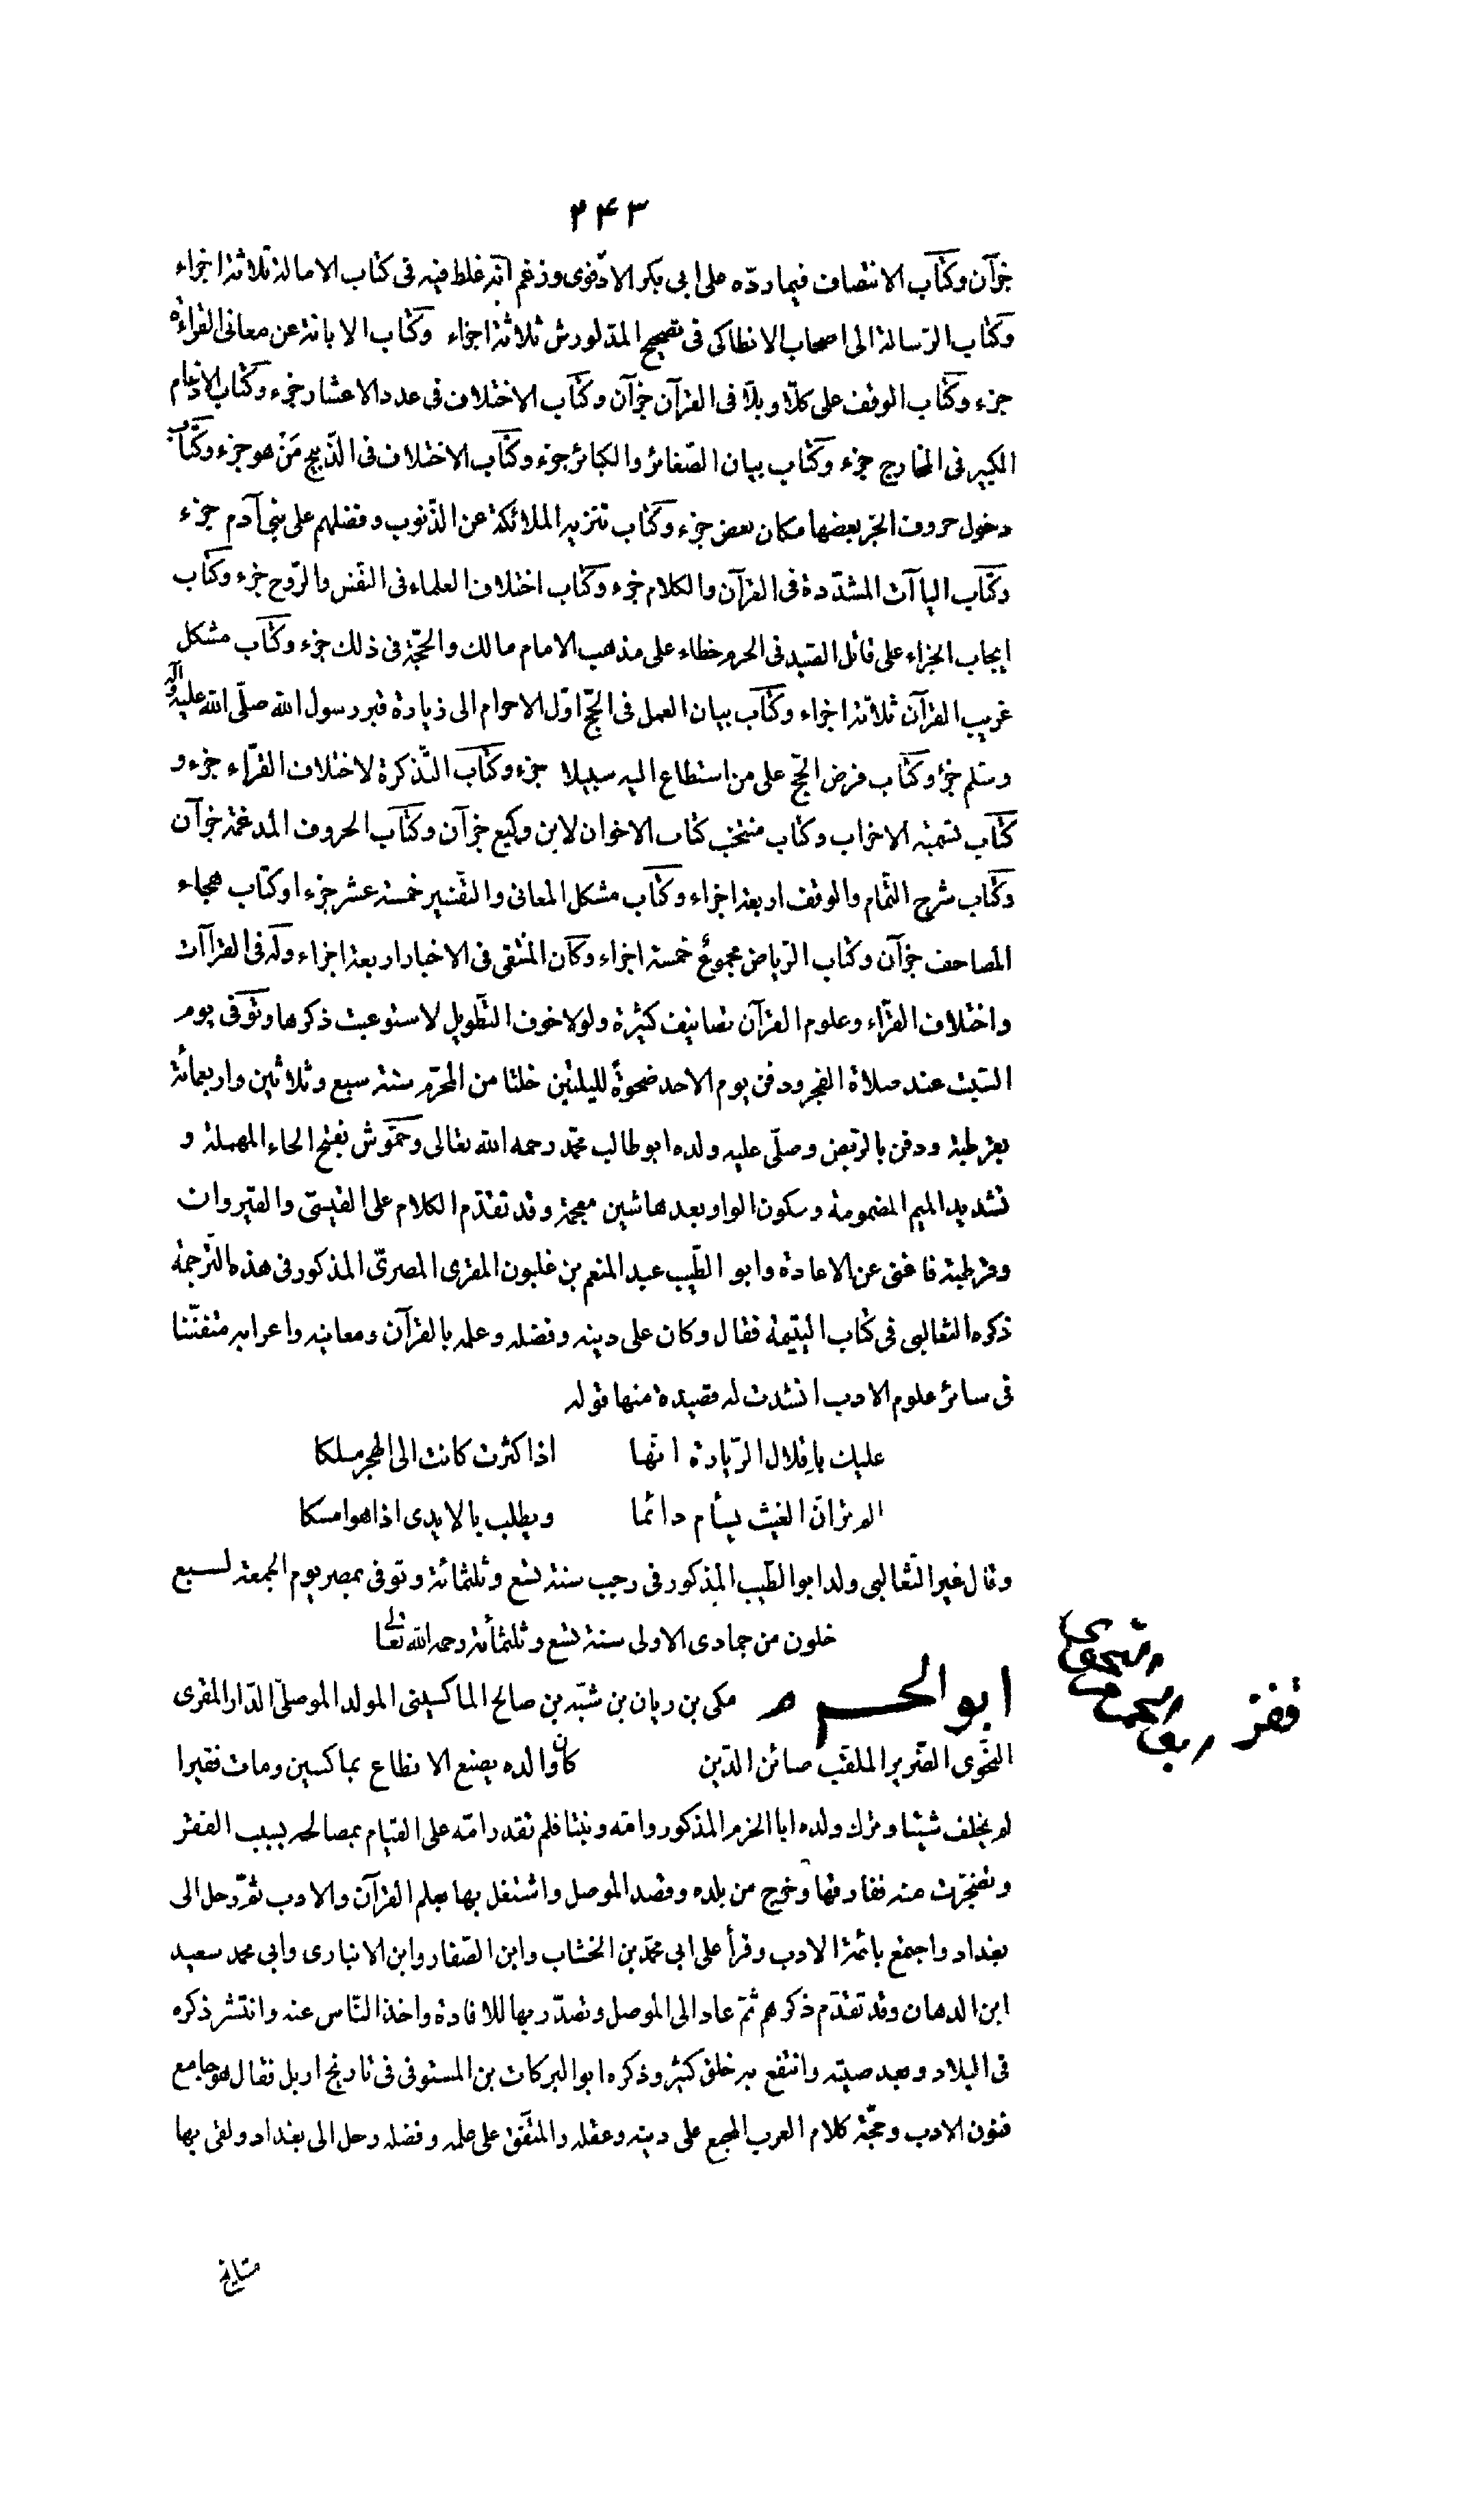 ۲۴۳
جزآن وكتاب الانتصاف فيما ردّه على ابى بكر الادفوى وزعم انّه غلط فيه فى كتاب الامالة ثلاثة اجزاء
وكتاب الرّسالة الى اصحاب الانطاكى فى تصحيح المدّ لورش ثلاثة اجزاء وكتاب الابانة عن معانى القراءة
جزء وكتاب الوقف على كلّا وبلا فى القرآن جزآن وكتاب الاختلاف فى عدد الاعشار جزء وكتاب الادغام
الكبير فى المخارج جزء وكتاب بيان الصّغائر والكبائر جزء وكتاب الاختلاف فى الذّبيح مَنْ هو جزء وكتاب
دخول حروف الجرّ بعضها مكان بعض جزء وكتاب تنزيه الملائكة عن الذّنوب وفضلهم على بنى آدم جزء
وكتاب الياآت المشدّدة فى القرآن والكلام جزء وكتاب اختلاف العلماء فى النّفس والرّوح جزء وكتاب
ايجاب الجزاء على قاتل الصّيد فى الحرم خطاء على مذهب الامام مالك والحجّة فى ذلك جزء وكتاب مشكل
غريب القرآن ثلاثة اجزاء وكتاب بيان العمل فى الحجّ اوّل الاحرام الى زيارة قبر رسول الله صلّى الله عليه وآله
وسلم جزء وكتاب فرض الحجّ على من استطاع اليه سبيلا جزء وكتاب التّذكرة لاختلاف القرّاء جزء و
كتاب تسمية الاحزاب وكتاب منتخب كتاب الاخوان لابن وكيع جزآن وكتاب الحروف المدغمة جزآن
وكتاب شرح التّمام والوقف اربعة اجزاء وكتاب مشكل المعانى والتّفسير خمسة عشر جزءا وكتاب هجاء
المصاحف جزآن وكتاب الرّياض مجموعٌ خمسة اجزاء وكان المنتقى فى الاخبار اربعة اجزاء وله فى القراآت
واختلاف القرّاء وعلوم القرآن تصانيف كثيرة ولولا خوف التّطويل لاستوعبت ذكرها وتوفى يوم
السّبت عند صلاة الفجر ودفن يوم الاحد ضحوةً لليلتين خلتا من المحرّم سنة سبع وثلاثين واربعمائة
بقرطبة ودفن بالرّبض وصلّى عليه ولده ابو طالب محمّد رحمه الله تعالى وحمّوش بفتح الحاء المهملة و
تشديد الميم المضمومة وسكون الواو بعدها شين معجمة وقد تقدّم الكلام على القيسىّ والقيروان
وقرطبة فاغنى عن الاعادة وابو الطّيب عبد المنعم بن غلبون المقرى المصرىّ المذكور فى هذه التّرجمة
ذكره الثعالبى فى كتاب اليتيمة فقال وكان على دينه وفضله وعلمه بالقرآن ومعانيه واعرابه متفنّنا
فى سائر علوم الادب انشدت له قصيدة منها قوله
عليك باقلال الزّيارة انّها اذا كثرت كانت الى الهجر مسلكا
الم تر انّ الغيث يسأم دائما ويطلب بالايدى اذا هو امسكا
وقال غير الثّعالبى ولد ابو الطّيب المذكور فى رجب سنة تسع وثلثمائة وتوفى بمصر يوم الجمعة لسبع
خلون من جمادى الاولى سنة تسع وثلثمأئة رحمه الله تعالى
ابو الحرم مكى بن ريان بن شبّه بن صالح الماكسينى المولد الموصلىّ الدّار المقرى
النّحوى الضّرير الملقب صائن الدّين كان والده يصنع الانطاع بماكسين ومات فقيرا
لم يخلف شيئا وترك ولده ابا الحزم المذكور وامّه وبنتا فلم تقدر امّه على القيام بمصالحه بسبب الفقر
وتضجّرت منه ففارقها وخرج من بلده وقصد الموصل واشتغل بها بعلم القرآن والادب ثمّ رحل الى
بغداد واجتمع بائمّة الادب وقرأ على ابى محمّد بن الخشاب وابن الصّفار وابن الانبارى وابى محمد سعيد
ابن الدهان وقد تقدّم ذكرهم ثمّ عاد الى الموصل وتصدّر بها للافادة واخذ النّاس عنه وانتشر ذكره
فى البلاد وبعد صيته وانتفع به خلق كثير وذكره ابو البركات بن المستوفى فى تاريخ اربل فقال هو جامع
فنون الادب وحجّة كلام العرب المجمع على دينه وعقله والمتّفق على علمه وفضله رحل الى بغداد ولقى بها
مشايخ